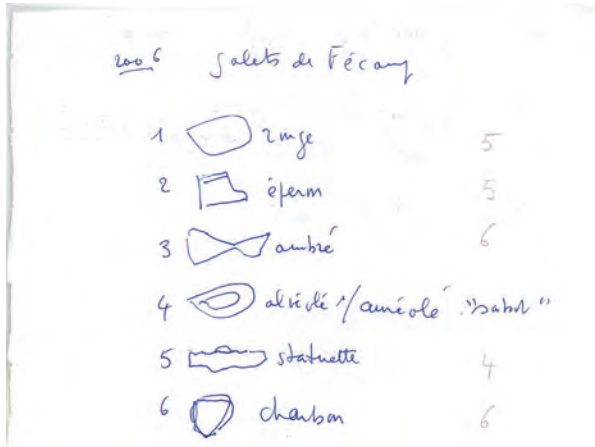 2006 galets de Fécamp
1 5
2 5
3 ambré 6
4 alvéolé / auréolé "sabot"
5 statuette 4
6 charbon 6